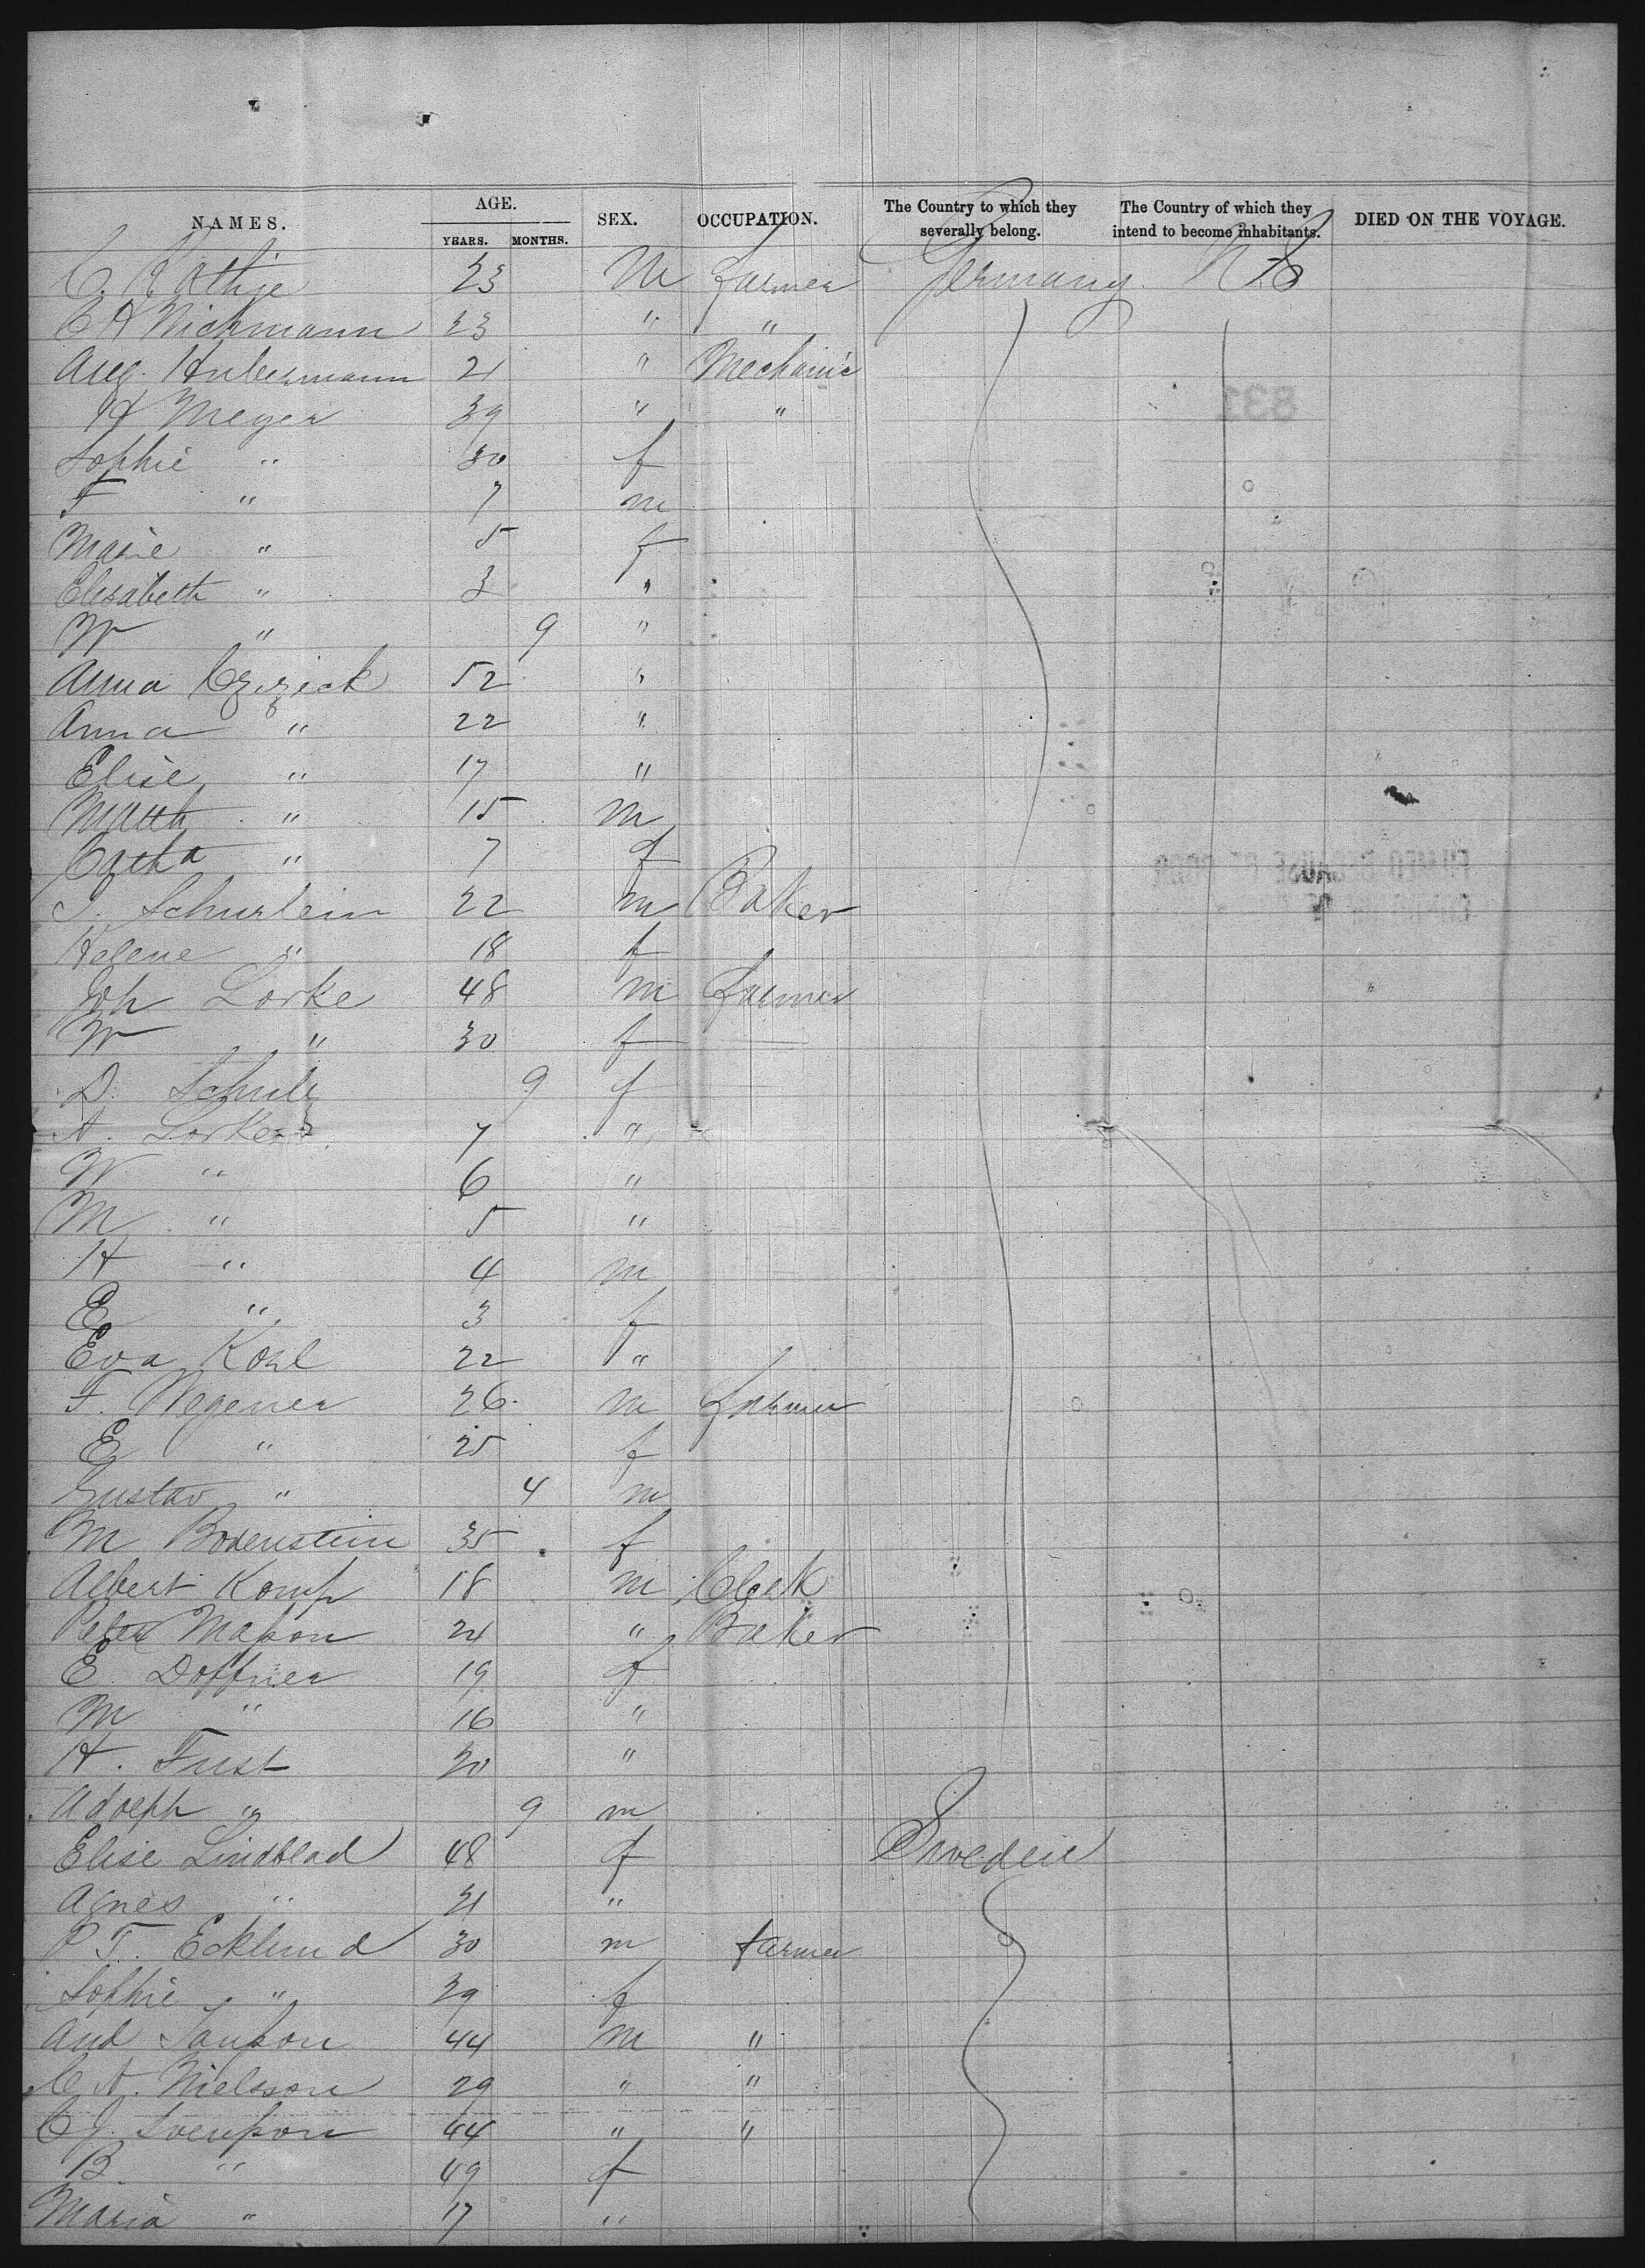 NAMES. AGE. SEX. OCCUPATION. The Country to which they severally belong. The Country of which they intend to become inhabitants. DIED ON THE VOYAGE.
YEARS. MONTHS.
C. Rathje 23 m farmer Germany
C H Wichmann 23 " "
Aug. Hubermann 21 " Mechanic
H Meyer 39 " "
Sophie " 30 f
F " 7 m
Marie " 5 f
Elisabeth " 3 "
W " 9 "
Anna Czizick 52 "
Anna " 22 "
Elise " 17 "
Math " 15 m
Catha " 7 f
J. Schurlein 22 m Baker
Helene " 18 f
Joh Lorke 48 m farmer
W " 30 f
D. Schulz 9 f
A. Lorke 7 "
W " 6 "
M " 5 "
H " 4 m
E " 3 f
Eva Kohl 22 "
F. Wegener 26 m farmer
E " 25 f
Gustav " 4 m
M Bodenstein 35 f
Albert Komp 18 m Clerk
Peter Maßon 24 " Baker
E. Doffner 19 f
M " 16 "
H. Fust 30 "
Adolph " 9 m
Elise Lindblad 48 f Sweden
Agnes " 21 "
P T. Ecklund 30 m farmer
Sophie " 39 f
And Janßon 44 m "
C A. Nielsson 29 " "
C J. Svenßon 44 " "
B. " 49 f
Maria " 17 "
831